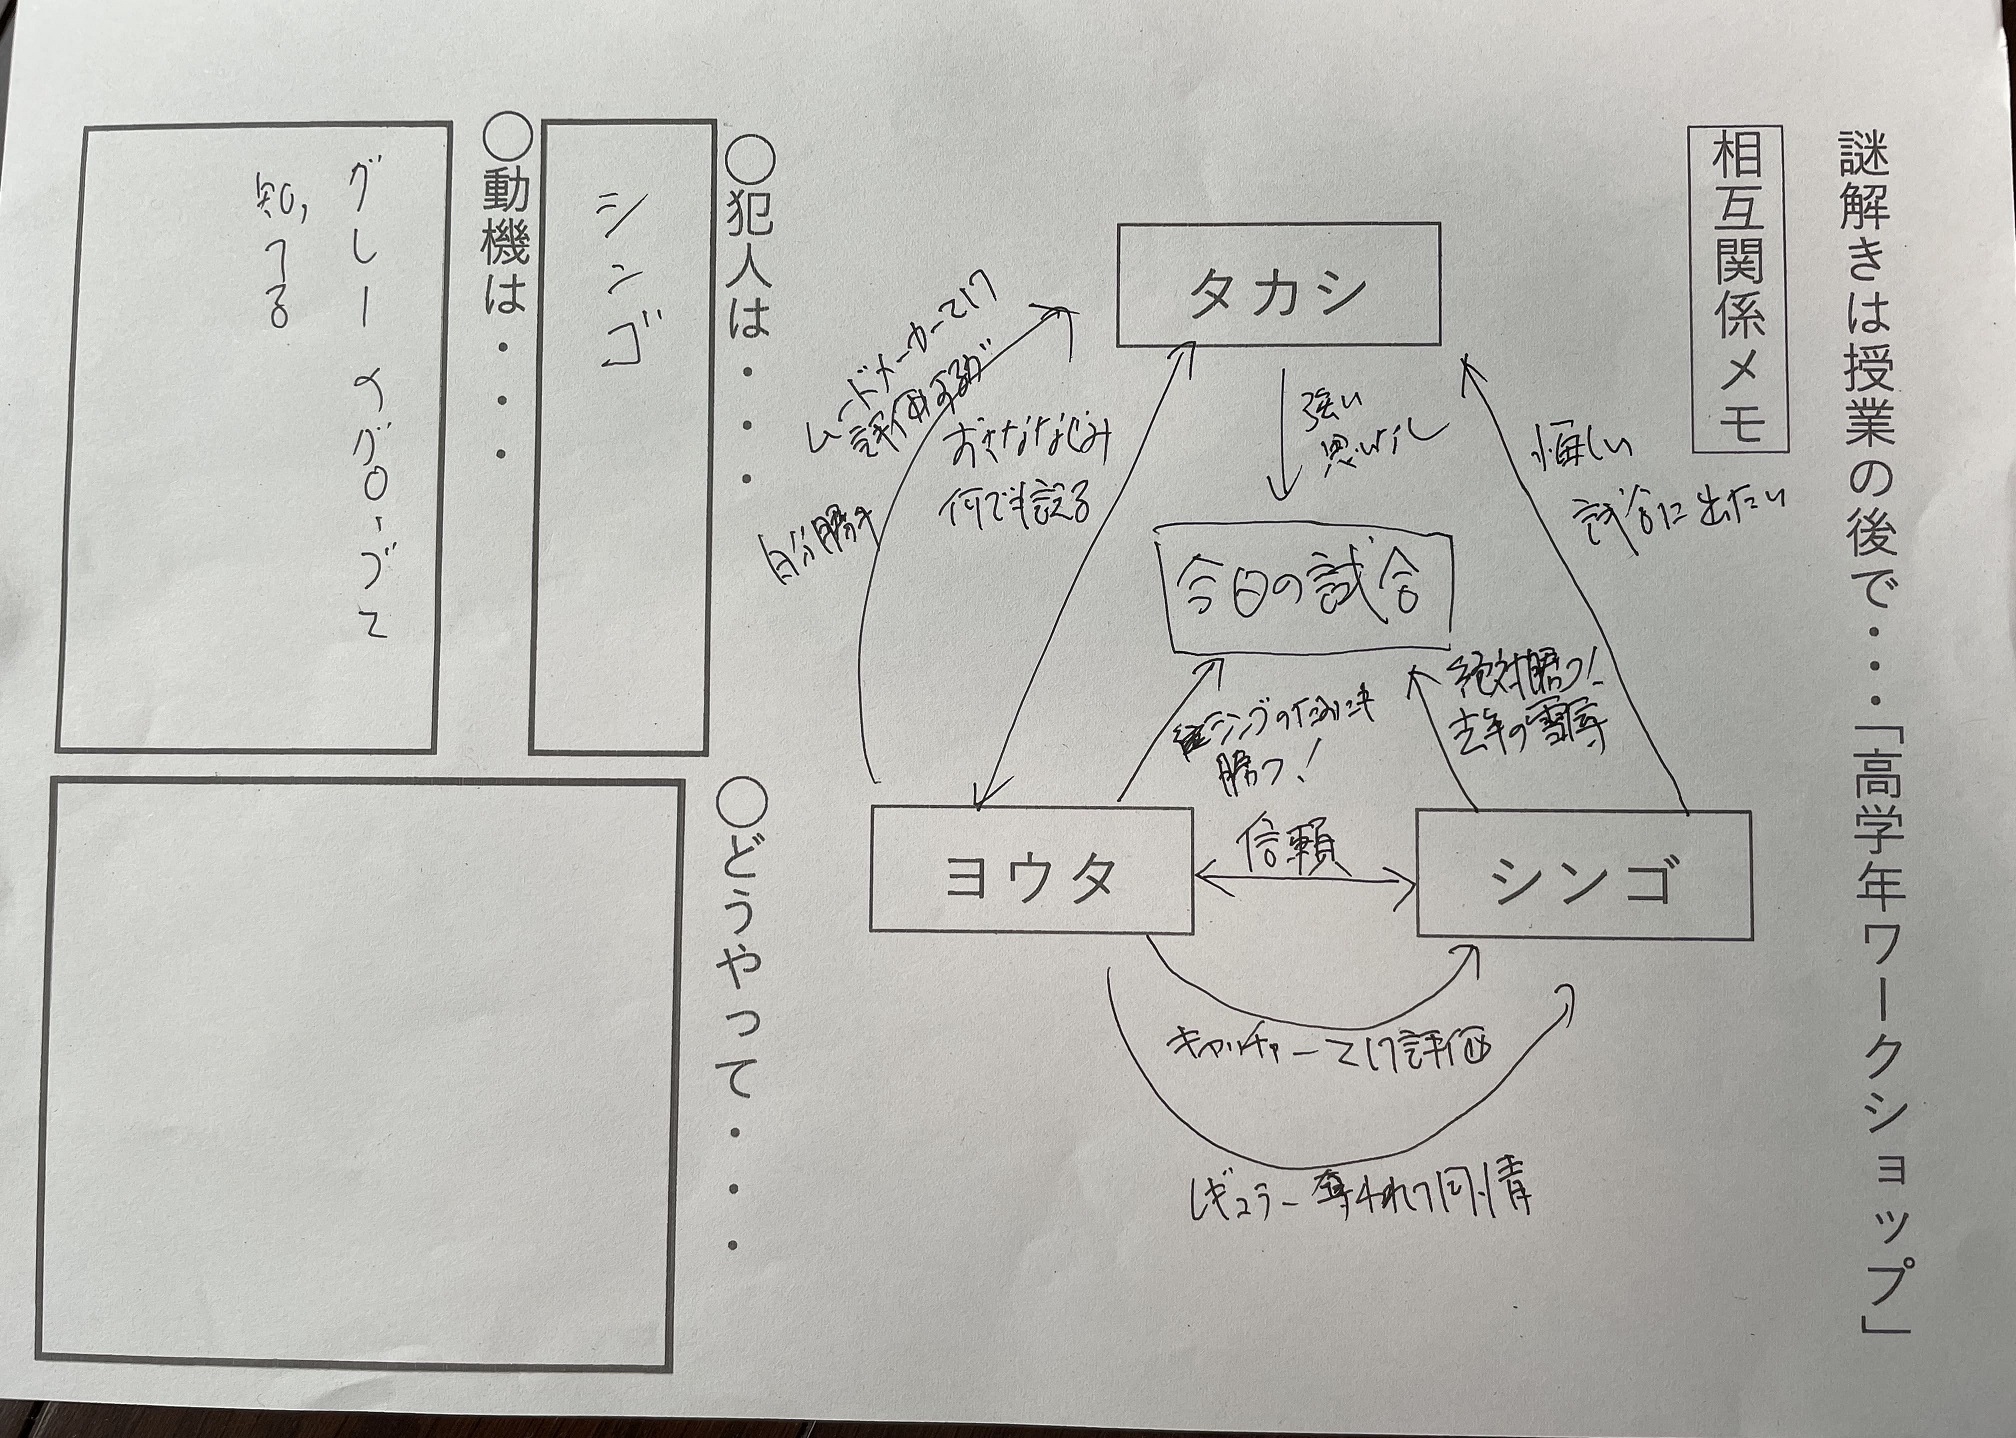 謎解きは授業の後で・・・「高学年ワークショップ」
相互関係メモ
タカシ
強い
思い
悔しい
試合に出たい
ムードメーカーとして
評価するが
自分勝手
おさななじみ
何でも言える
今日の試合
シンゴのためにも
勝つ!
絶対勝つ!
去年の雪辱
ヨウタ
信頼
シンゴ
キャッチャーとして評価
レギュラー奪われて同情
○犯人は・・・
シンゴ
○動機は・・・
グレーのグローブと
知ってる
○どうやって・・・